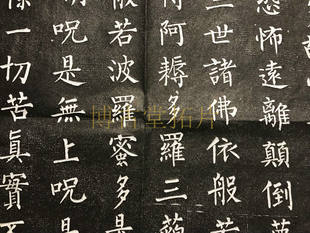 恐怖遠離顛倒夢
三世諸佛依般若
得阿耨多羅三藐
般若波羅蜜多是
明呪是無上呪是
除一切苦眞實不